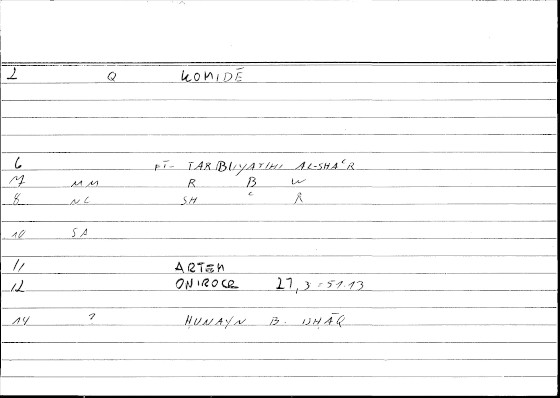 2 Q KOMIDĒ
6 FĪ- TARBIYATIHI AL-SHAʿR
7 MM R B W
8 NC SH ʿ R
10 SA
11 ARTEM
12 ONIROCR 27,3 = 51.13
14 ? HUNAYN B. ISHĀQ